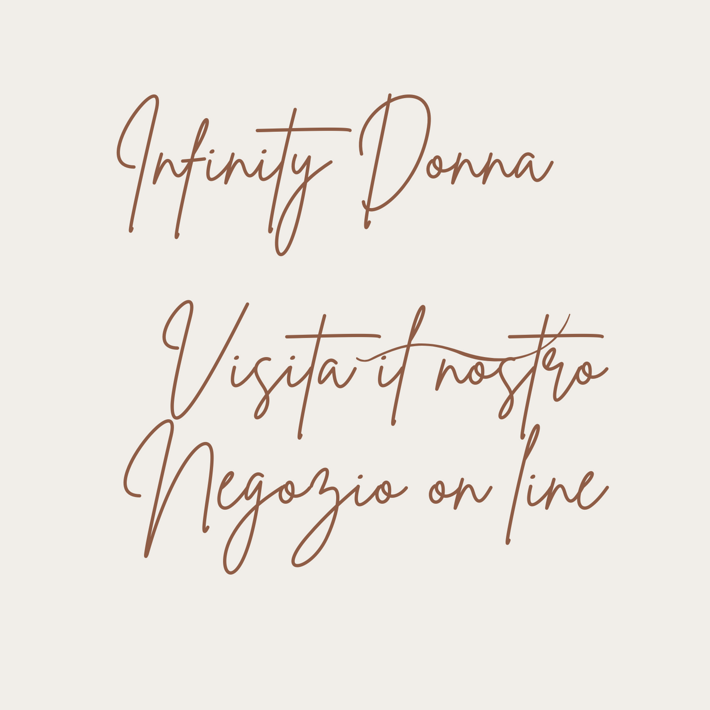 Infinity Donna
Visita il nostro
Negozio on line